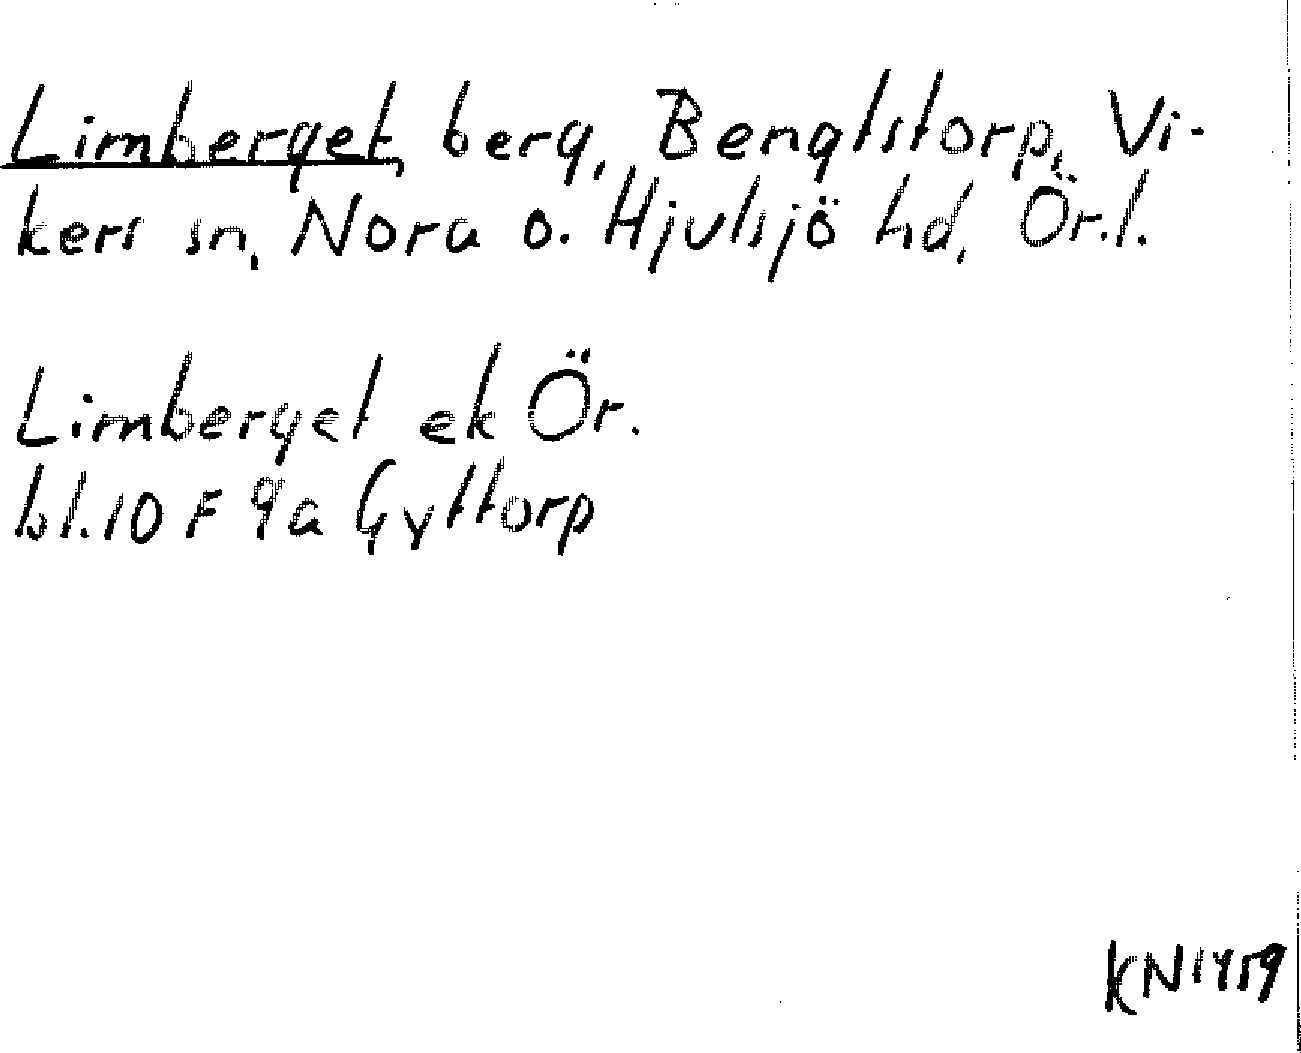 Limberget, berg, Bengtstorp, Vi-
kers sn, Nora o. Hjulsjö hd, Ör.l.
Limberget ek Ör.
bl.10 F 9a Gyttorp